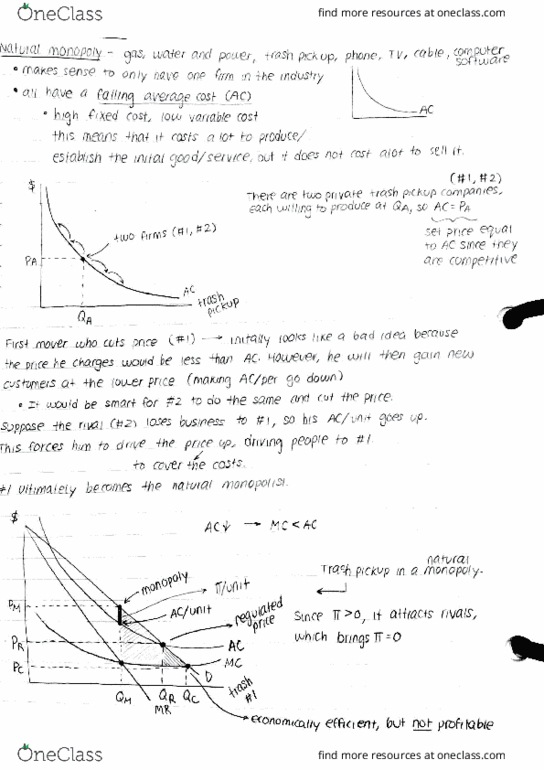 OneClass
find more resources at oneclass.com
Natural monopoly - gas, water and power, trash pickup, phone, TV, cable, computer software
• makes sense to only have one firm in the industry
• all have a falling average cost (AC)
AC
• high fixed cost, low variable cost
this means that it costs a lot to produce/
establish the inital good/service, but it does not cost alot to sell it.
$
(#1, #2)
There are two private trash pickup companies,
each willing to produce at QA, so AC=PA
set price equal
to AC since they
are competitive
two firms (#1, #2)
PA
AC
trash
pickup
QA
First mover who cuts price (#1) → initally looks like a bad idea because
the price he charges would be less than AC. However, he will then gain new
customers at the lower price (making AC/per go down)
• It would be smart for #2 to do the same and cut the price.
Suppose the rival (#2) loses business to #1, so his AC/unit goes up.
This forces him to drive the price up, driving people to #1
to cover the costs.
#1 ultimately becomes the natural monopolist.
$
AC↓ → MC < AC
natural
Trash pickup in a monopoly.
monopoly
π/unit
PM
AC/unit
regulated
price
Since π>0, it attracts rivals,
which brings π=0
PR
AC
PC
MC
D
trash
#1
QM
QR
QC
MR
economically efficient, but not profitable
OneClass
find more resources at oneclass.com